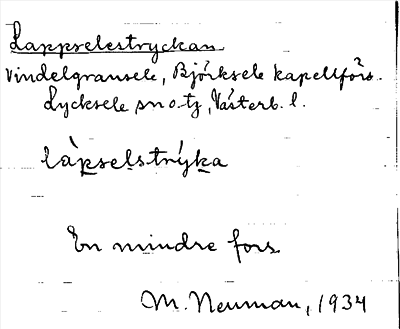 Lappselestryckan
Vindelgransele, Björksele kapellförs.
Lycksele sn o. tg, Västerb. l.
làpselstrýka
En mindre fors
M. Neuman, 1934